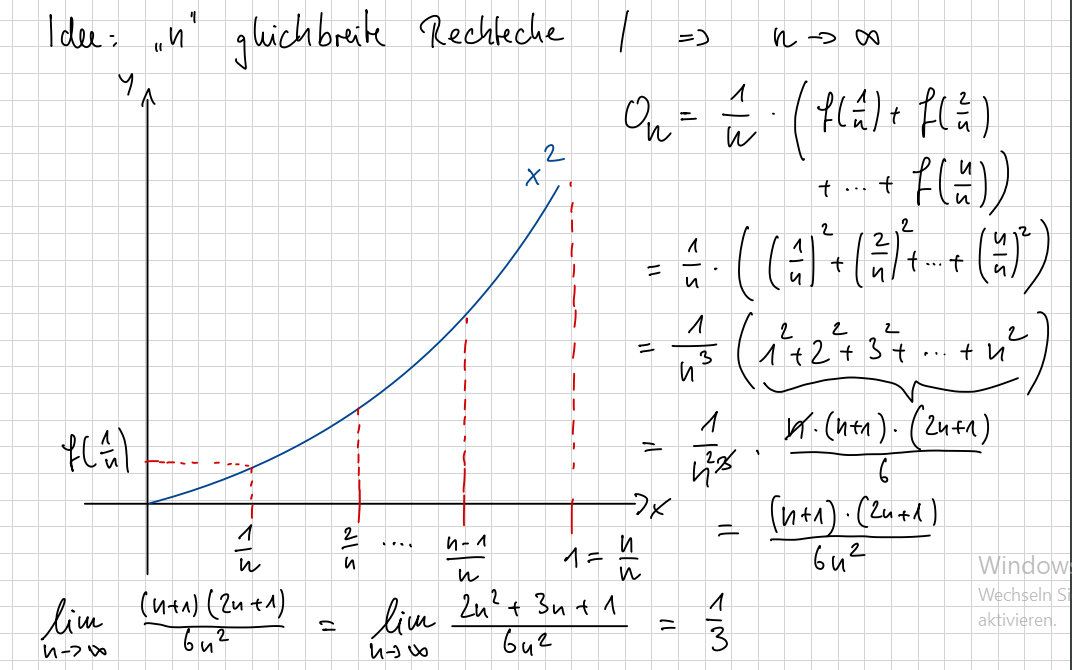 Idee: „n" gleichbreite Rechtecke / => n → ∞
y
x²
O_n = 1/n · ( f(1/n) + f(2/n)
+ ... + f(n/n) )
= 1/n · ( (1/n)² + (2/n)² + ... + (n/n)² )
= 1/n³ ( 1² + 2² + 3² + ... + n² )
= 1/n² · n·(n+1)·(2n+1)/6
= (n+1)·(2n+1)/6n²
f(1/n)
x
1/n 2/n .... n-1/n 1 = n/n
lim n→∞ (n+1)(2n+1)/6n² = lim n→∞ 2n² + 3n + 1/6n² = 1/3
Windows
Wechseln Si
aktivieren.